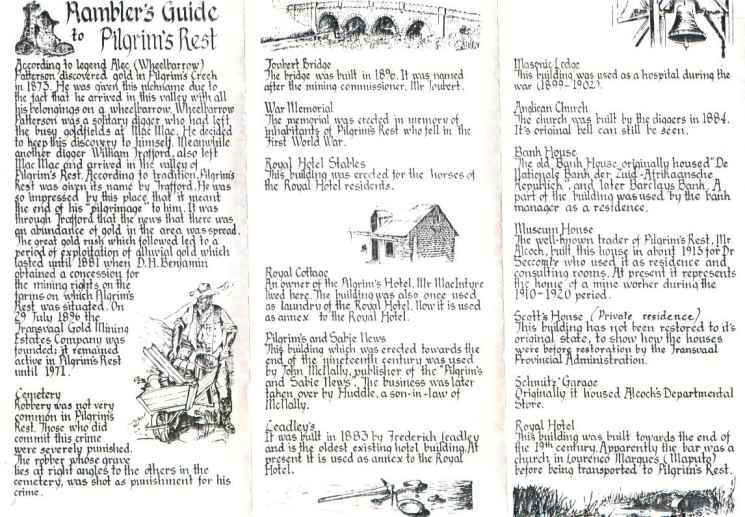 Rambler's Guide
to Pilgrim's Rest
According to legend Alec (Wheelbarrow)
Patterson discovered gold in Pilgrim's Creek
in 1873. He was given this nickname due to
the fact that he arrived in this valley with all
his belongings on a wheelbarrow. Wheelbarrow
Patterson was a solitary digger who had left
the busy goldfields at Mac Mac. He decided
to keep this discovery to himself. Meanwhile
another digger William Trafford, also left
Mac Mac and arrived in the valley of
Pilgrim's Rest. According to tradition, Pilgrim's
Rest was given its name by Trafford. He was
so impressed by this place that it meant
the end of his "pilgrimage" to him. It was
through Trafford that the news that there was
an abundance of gold in the area was spread.
The great gold rush which followed led to a
period of exploitation of alluvial gold which
lasted until 1881 when D.H. Benjamin
obtained a concession for
the mining rights on the
farms on which Pilgrim's
Rest was situated. On
29 July 1896 the
Transvaal Gold Mining
Estates Company was
founded; it remained
active in Pilgrim's Rest
until 1971.
Cemetery
Robbery was not very
common in Pilgrim's
Rest. Those who did
commit this crime
were severely punished.
The robber whose grave
lies at right angles to the others in the
cemetery, was shot as punishment for his
crime.
Joubert Bridge
The bridge was built in 1896. It was named
after the mining commissioner, Mr Joubert.
War Memorial
The memorial was erected in memory of
inhabitants of Pilgrim's Rest who fell in the
First World War.
Royal Hotel Stables
This building was erected for the horses of
the Royal Hotel residents.
Royal Cottage
An owner of the Pilgrim's Hotel, Mr MacIntyre
lived here. The building was also once used
as laundry of the Royal Hotel. Now it is used
as annex to the Royal Hotel.
Pilgrim's and Sabie News
This building which was erected towards the
end of the nineteenth century was used
by John McNally, publisher of the "Pilgrim's
and Sabie News". The business was later
taken over by Huddle, a son-in-law of
McNally.
Leadley's
It was built in 1883 by Frederich Leadley
and is the oldest existing hotel building. At
present it is used as annex to the Royal
Hotel.
Masonic Lodge
This building was used as a hospital during the
war (1899-1902).
Anglican Church
The church was built by the diggers in 1884.
It's original bell can still be seen.
Bank House
The old Bank House originally housed "De
Nationale Bank der Zuid-Afrikaansche
Republich", and later Barclays Bank. A
part of the building was used by the bank
manager as a residence.
Museum House
The well-known trader of Pilgrim's Rest, Mr
Alcock, built this house in about 1913 for Dr
Seccombe who used it as residence and
consulting rooms. At present it represents
the home of a mine worker during the
1910-1920 period.
Scott's House (Private residence)
This building has not been restored to it's
original state, to show how the houses
were before restoration by the Transvaal
Provincial Administration.
Schmutz' Garage
Originally it housed Alcock's Departmental
Store.
Royal Hotel
This building was built towards the end of
the 19th century. Apparently the bar was a
church in Lourenco Marques (Maputo)
before being transported to Pilgrim's Rest.